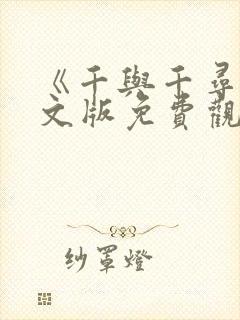 《千與千尋
文版免費觀
纱罩燈